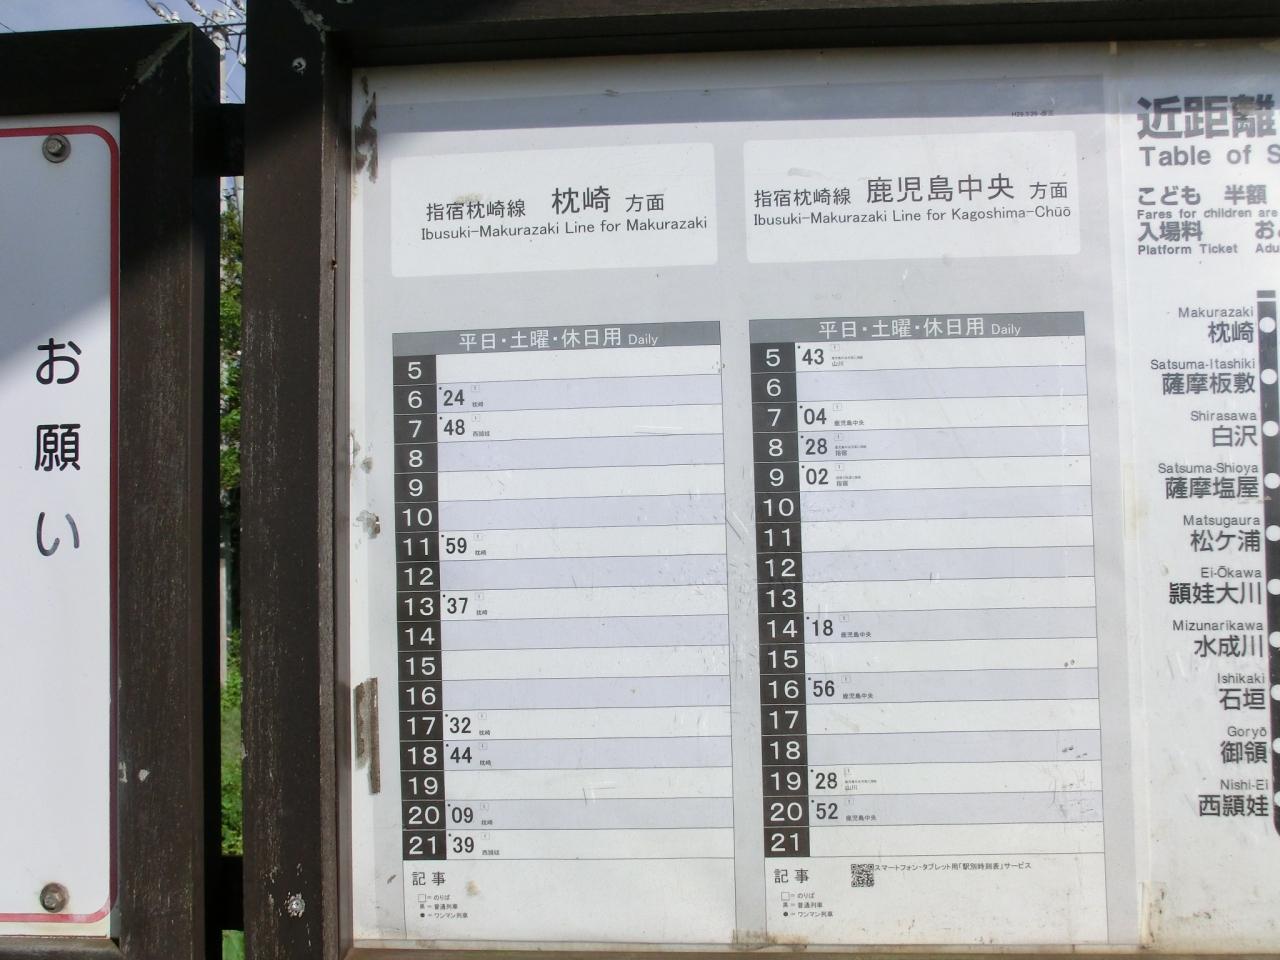 お願い
指宿枕崎線 枕崎 方面
Ibusuki-Makurazaki Line for Makurazaki
平日・土曜・休日用 Daily
5
6 24 枕崎
7 48 西頴娃
8
9
10
11 59 枕崎
12
13 37 枕崎
14
15
16
17 32 枕崎
18 44 枕崎
19
20 09 枕崎
21 39 西頴娃
記事
□=のりば
黒=普通列車
●=ワンマン列車
指宿枕崎線 鹿児島中央 方面
Ibusuki-Makurazaki Line for Kagoshima-Chūō
平日・土曜・休日用 Daily
5 43 山川
6
7 04 鹿児島中央
8 28 指宿
9 02 指宿
10
11
12
13
14 18 鹿児島中央
15
16 56 鹿児島中央
17
18
19 28 山川
20 52 鹿児島中央
21
記事
スマートフォン・タブレット用「駅別時刻表」サービス
近距離
Table of S
こども 半額
Fares for children are
入場料 お
Platform Ticket Adu
Makurazaki
枕崎
Satsuma-Itashiki
薩摩板敷
Shirasawa
白沢
Satsuma-Shioya
薩摩塩屋
Matsugaura
松ケ浦
Ei-Ōkawa
頴娃大川
Mizunarikawa
水成川
Ishikaki
石垣
Goryō
御領
Nishi-Ei
西頴娃